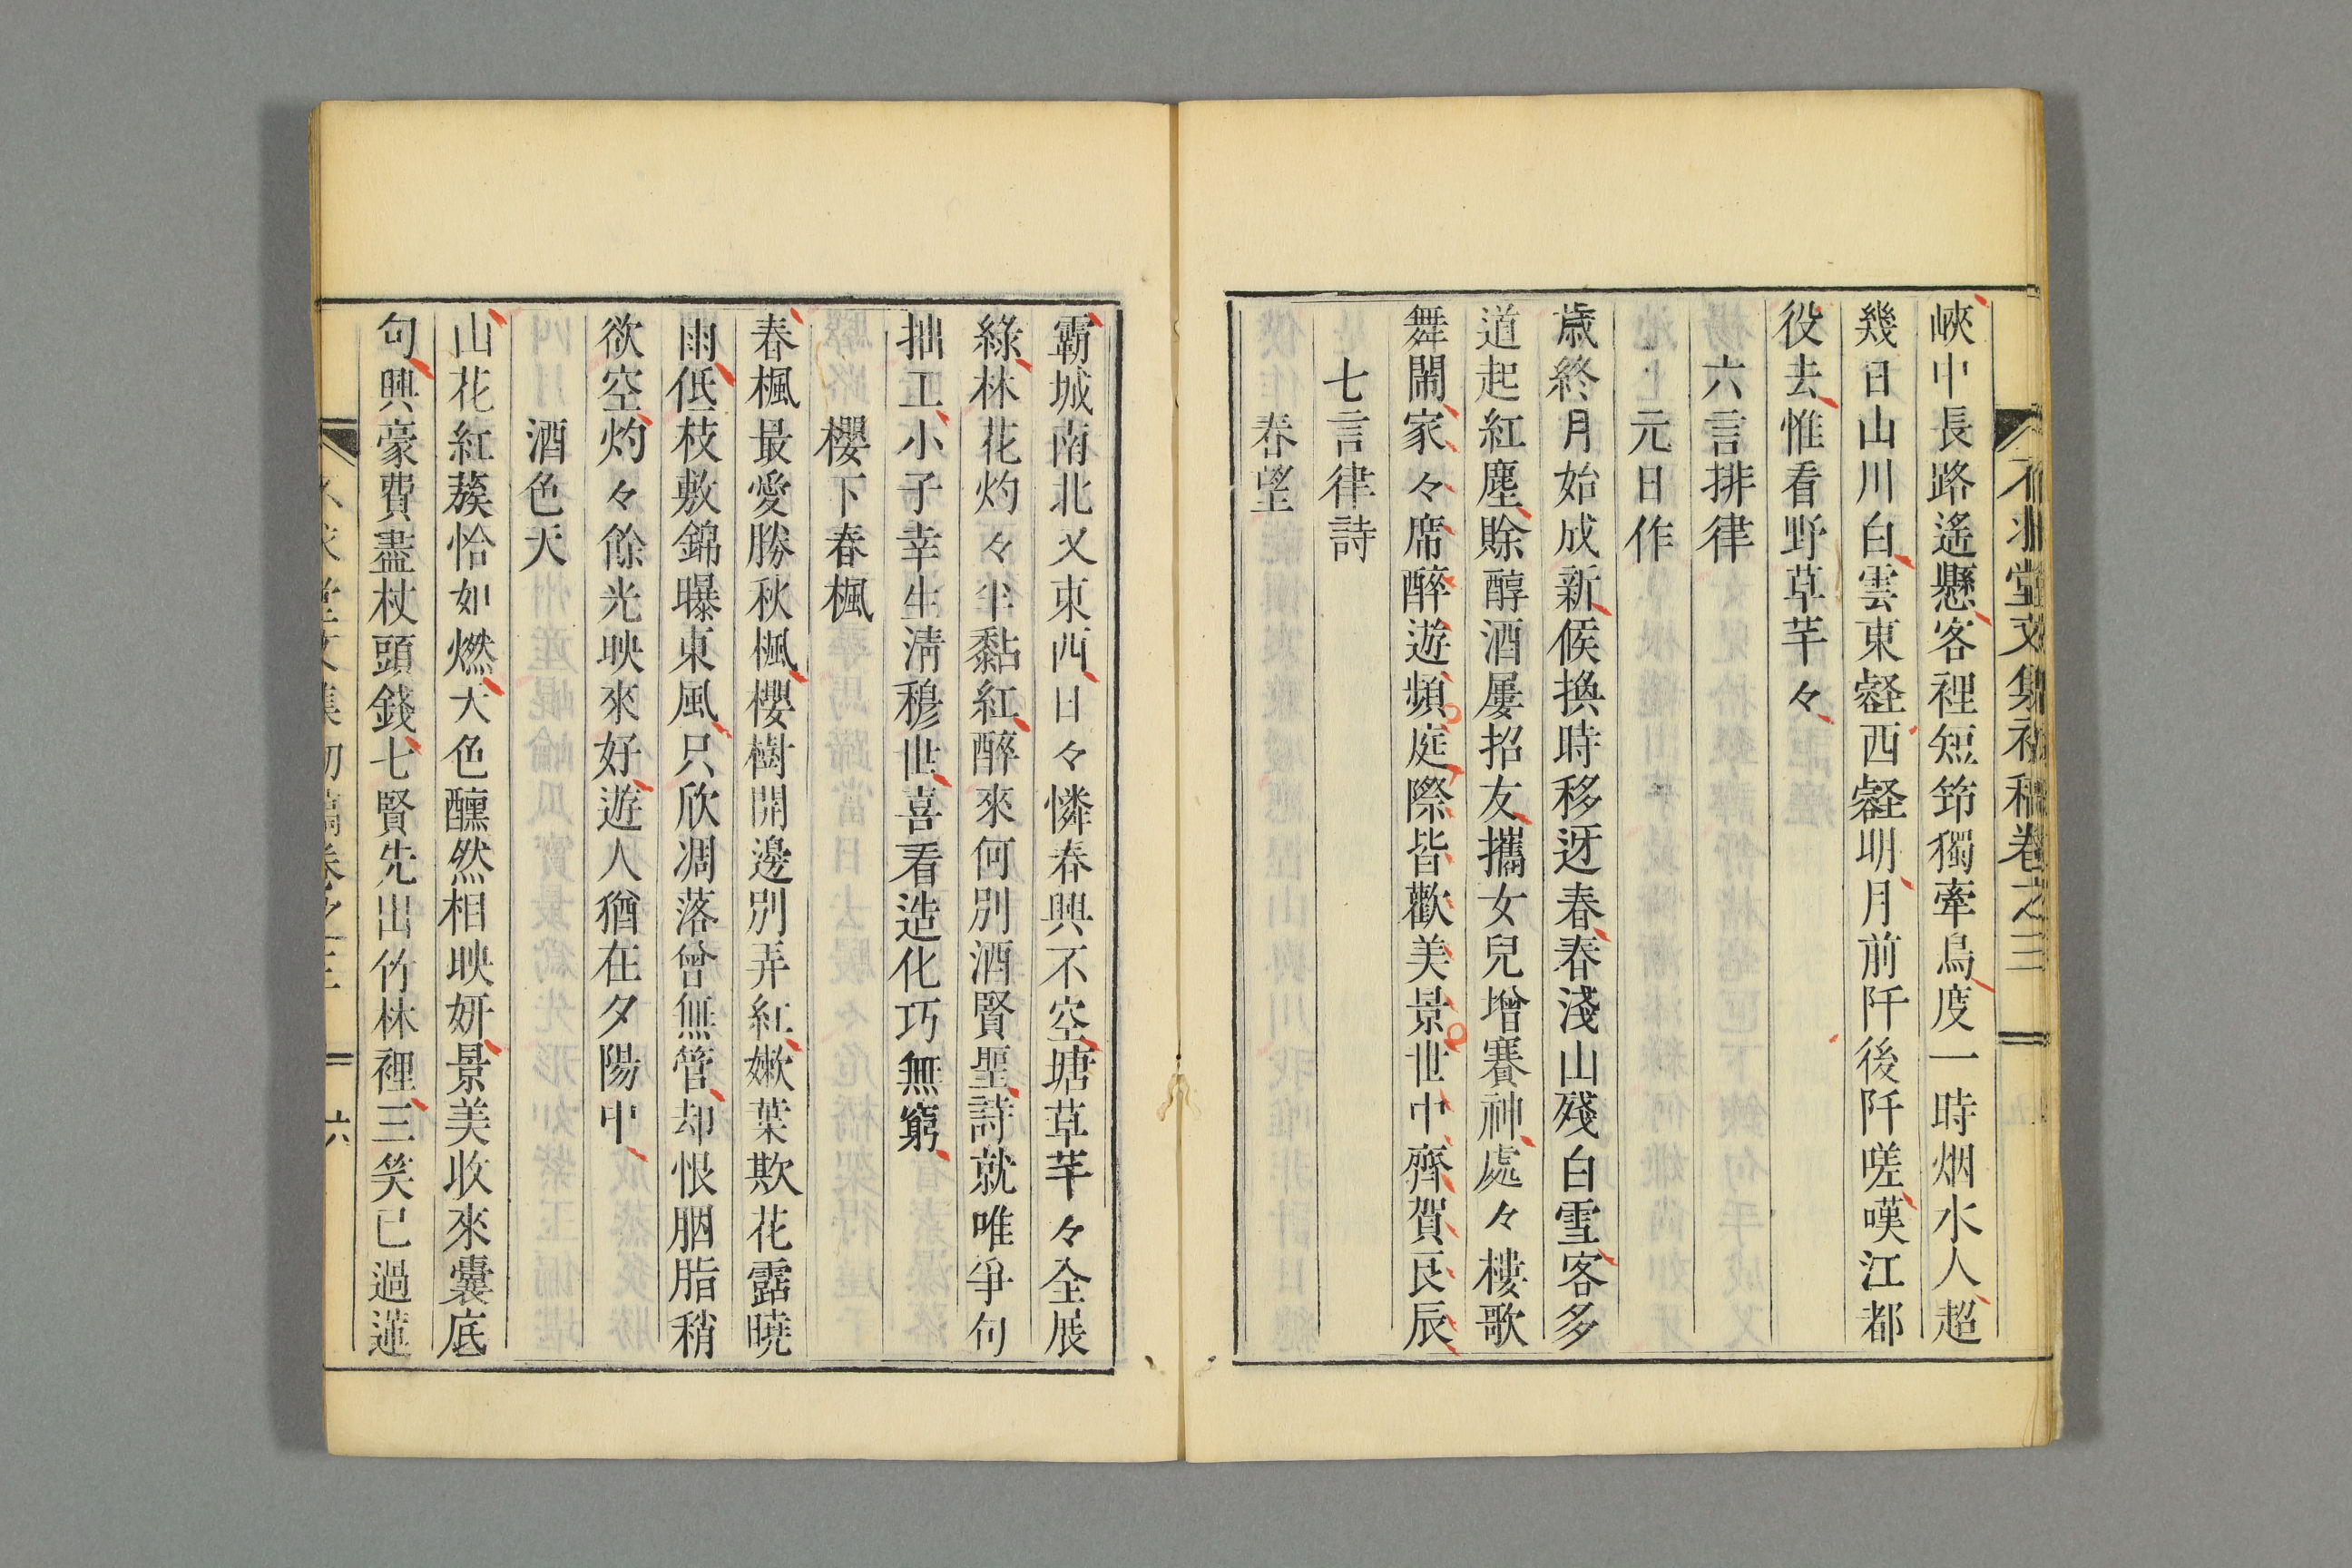 不求堂文集初稿卷之三
峽中長路遙懸客裡短笻獨牽烏度一時烟水人超
幾日山川白雲東壑西壑明月前阡後阡嗟嘆江都
役去惟看野草芊々
六言排律
元日作
歳終月始成新候換時移迓春春淺山殘白雪客多
道起紅塵賒醇酒屢招友攜女兒增賽神處々樓歌
舞閙家々席醉遊頻庭際皆歡美景世中齊賀良辰
七言律詩
春望
霸城南北又東西日々憐春興不空塘草芊々全展
綠林花灼々半黏紅醉來何別酒賢聖詩就唯爭句
拙工小子幸生淸穆世喜看造化巧無窮
櫻下春楓
春楓最愛勝秋楓櫻樹開邊別弄紅嫩葉欺花露曉
雨低枝敷錦曝東風只欣凋落曾無管却恨胭脂稍
欲空灼々餘光映來好遊人猶在夕陽中
酒色天
山花紅蔟恰如燃天色醺然相映妍景美收來囊底
句興豪費盡杖頭錢七賢先出竹林裡三笑已過蓮
不求堂文集初稿卷之三 六